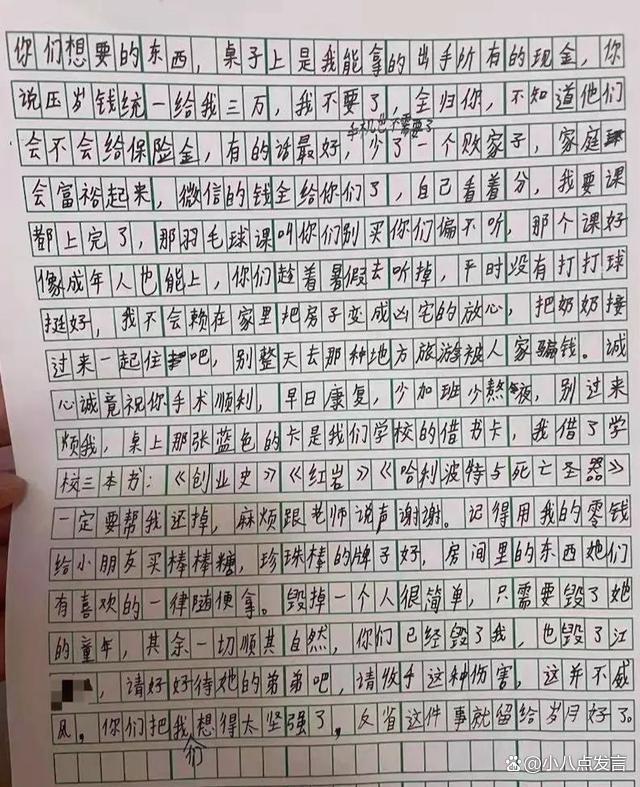 你们想要的东西，桌子上是我能拿的出手所有的现金，你
说压岁钱统一给我三万，我不要了，全归你，不知道他们
手机也不需要了
会不会给保险金，有的话最好，少了一个败家子，家庭
会富裕起来，微信的钱全给你们了，自己看着分，我要课
都上完了，那羽毛球课叫你们别买你们偏不听，那个课好
像成年人也能上，你们趁着暑假去听掉，平时没有打打球
挺好，我不会赖在家里把房子变成凶宅的放心，把奶奶接
过来一起住吧，别整天去那种地方旅游被人家骗钱。诚
心诚竟祝你手术顺利，早日康复，少加班少熬夜，别过来
烦我，桌上那张蓝色的卡是我们学校的借书卡，我借了学
校三本书：《创业史》《红岩》《哈利波特与死亡圣器》
一定要帮我还掉，麻烦跟老师说声谢谢。记得用我的零钱
给小朋友买棒棒糖，珍珠棒的牌子好，房间里的东西她们
有喜欢的一律随便拿。毁掉一个人很简单，只需要毁了她
的童年，其余一切顺其自然，你们已经毁了我，也毁了江
，请好好待她的弟弟吧，请收手这种伤害，这并不威
风。你们把我们想得太坚强了，反省这件事就留给岁月好了。
小八点发言